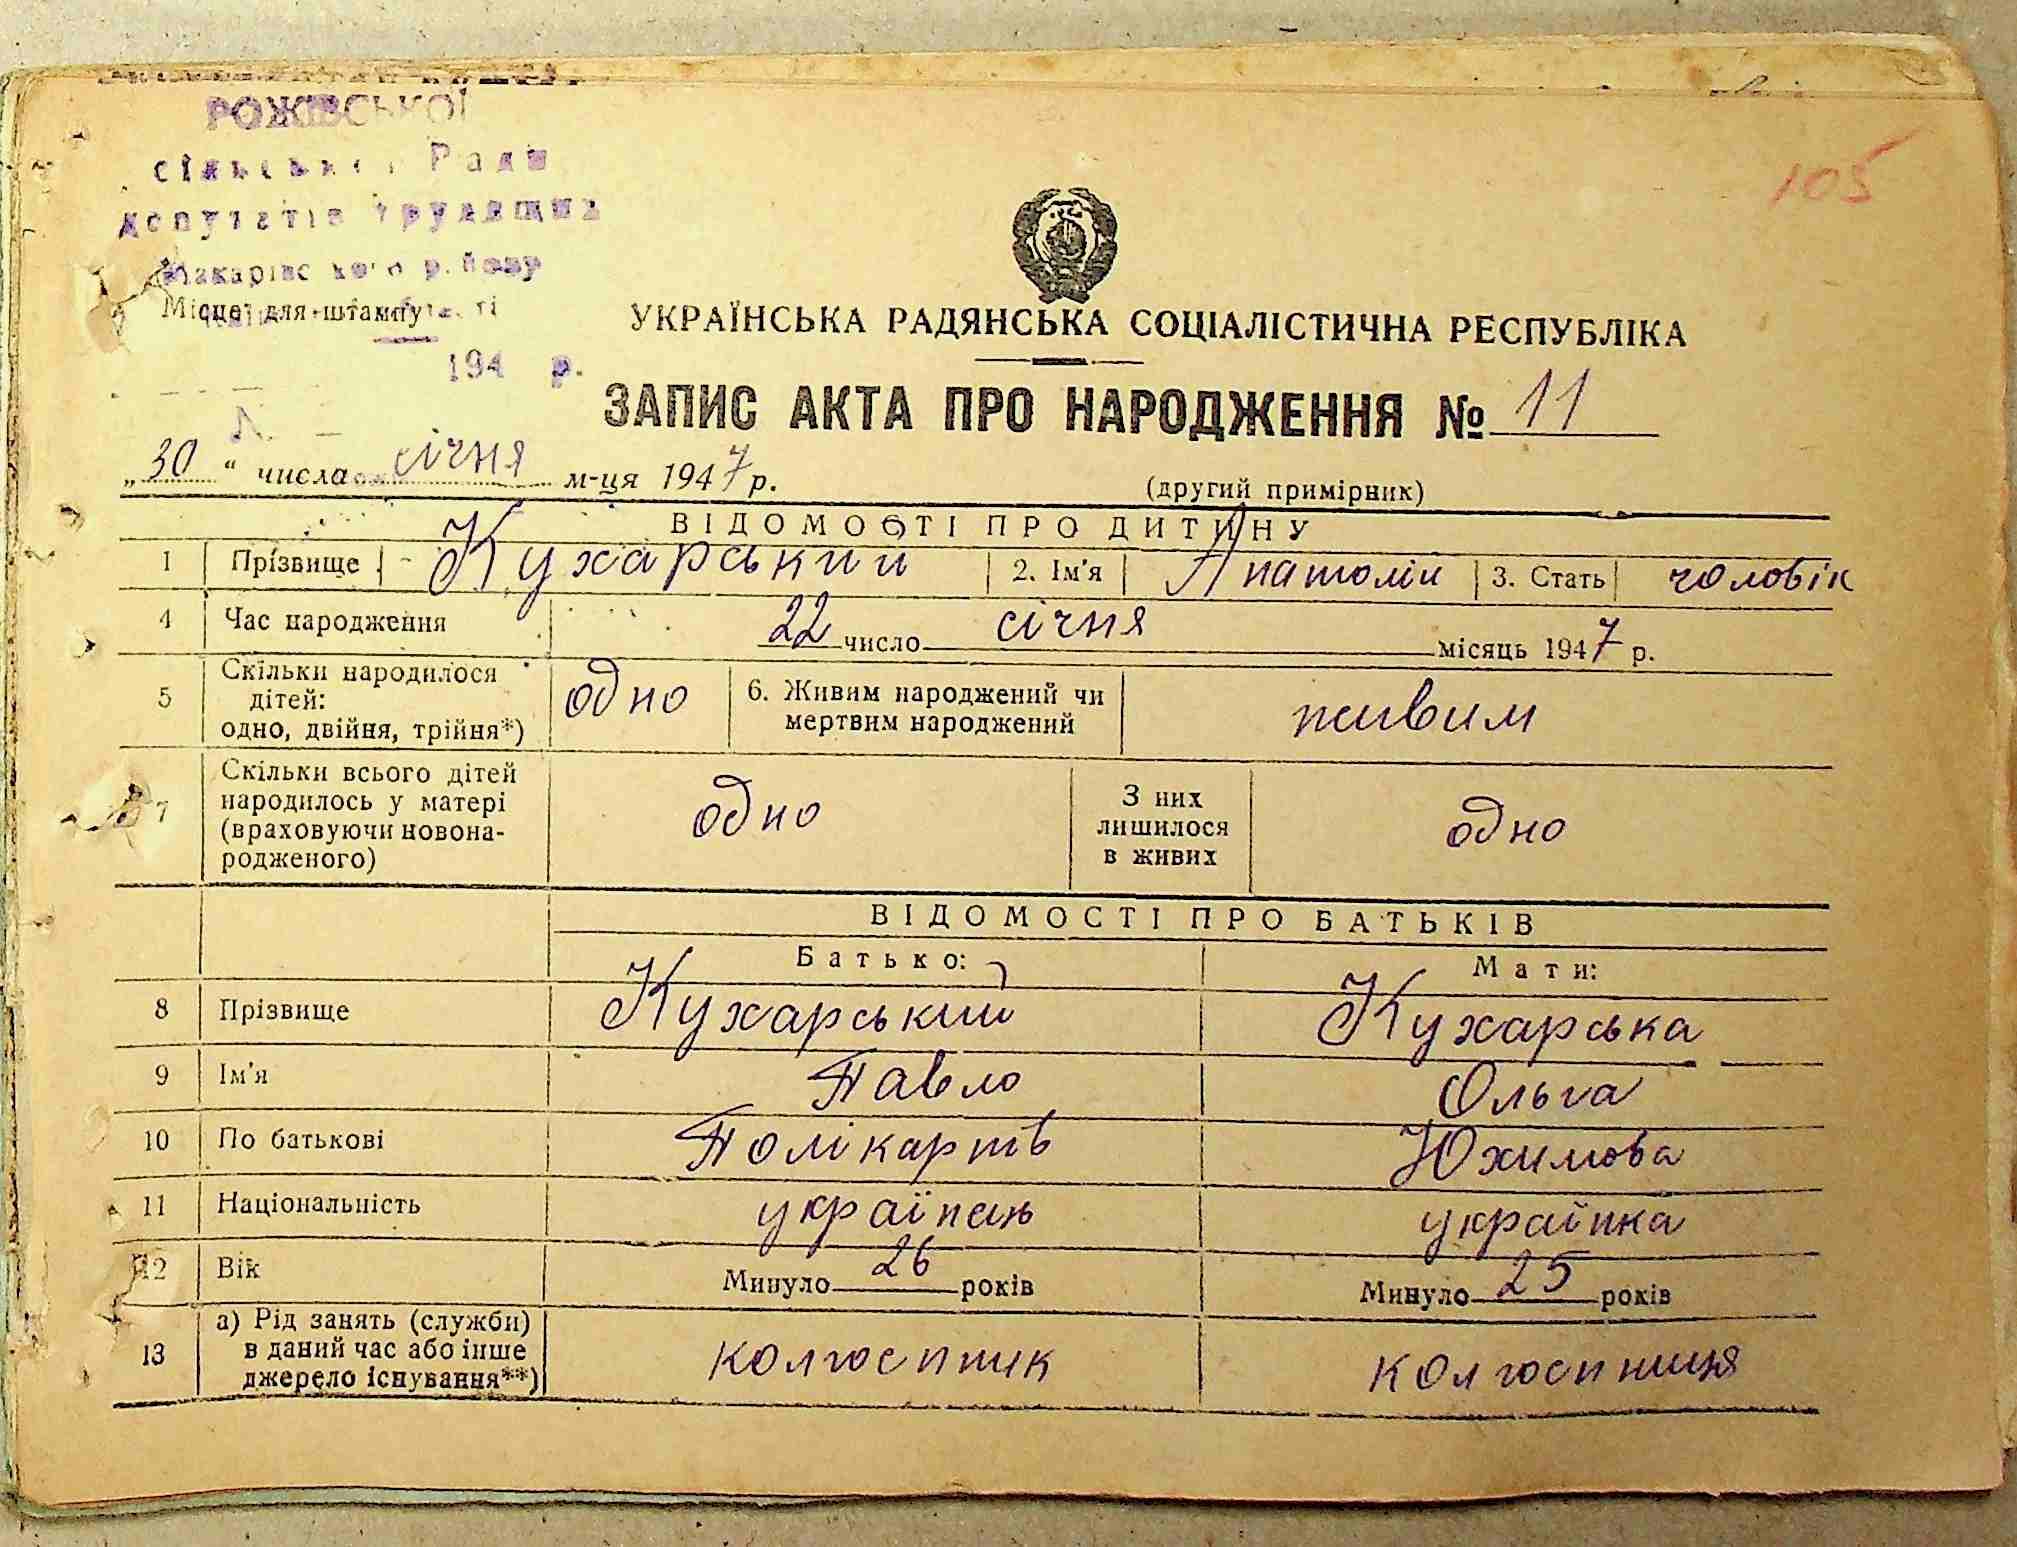 РОЖІВСЬКОЇ
сільської Ради
депутатів трудящих
Макарівського району
Місце для штампу
194 р.
105
УКРАЇНСЬКА РАДЯНСЬКА СОЦІАЛІСТИЧНА РЕСПУБЛІКА
ЗАПИС АКТА ПРО НАРОДЖЕННЯ № 11
„30“ числа січня м-ця 1947 р.
(другий примірник)
ВІДОМОСТІ ПРО ДИТИНУ
1 Прізвище Кухарський 2. Ім'я Анатолій 3. Стать чоловік
4 Час народження 22 число січня місяць 1947 р.
5 Скільки народилося
дітей:
одно, двійня, трійня*)
одно
6. Живим народжений чи
мертвим народжений
живим
7 Скільки всього дітей
народилось у матері
(враховуючи новона-
родженого)
одно
З них
лишилося
в живих
одно
ВІДОМОСТІ ПРО БАТЬКІВ
Батько: Мати:
8 Прізвище Кухарський Кухарська
9 Ім'я Павло Ольга
10 По батькові Полікарпів Юхимова
11 Національність українець українка
12 Вік Минуло 26 років Минуло 25 років
13 а) Рід занять (служби)
в даний час або інше
джерело існування**)
колгоспник колгоспниця